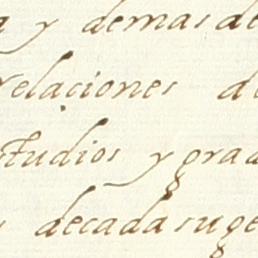 y demas de
relaciones d
studios y grad
decada suge